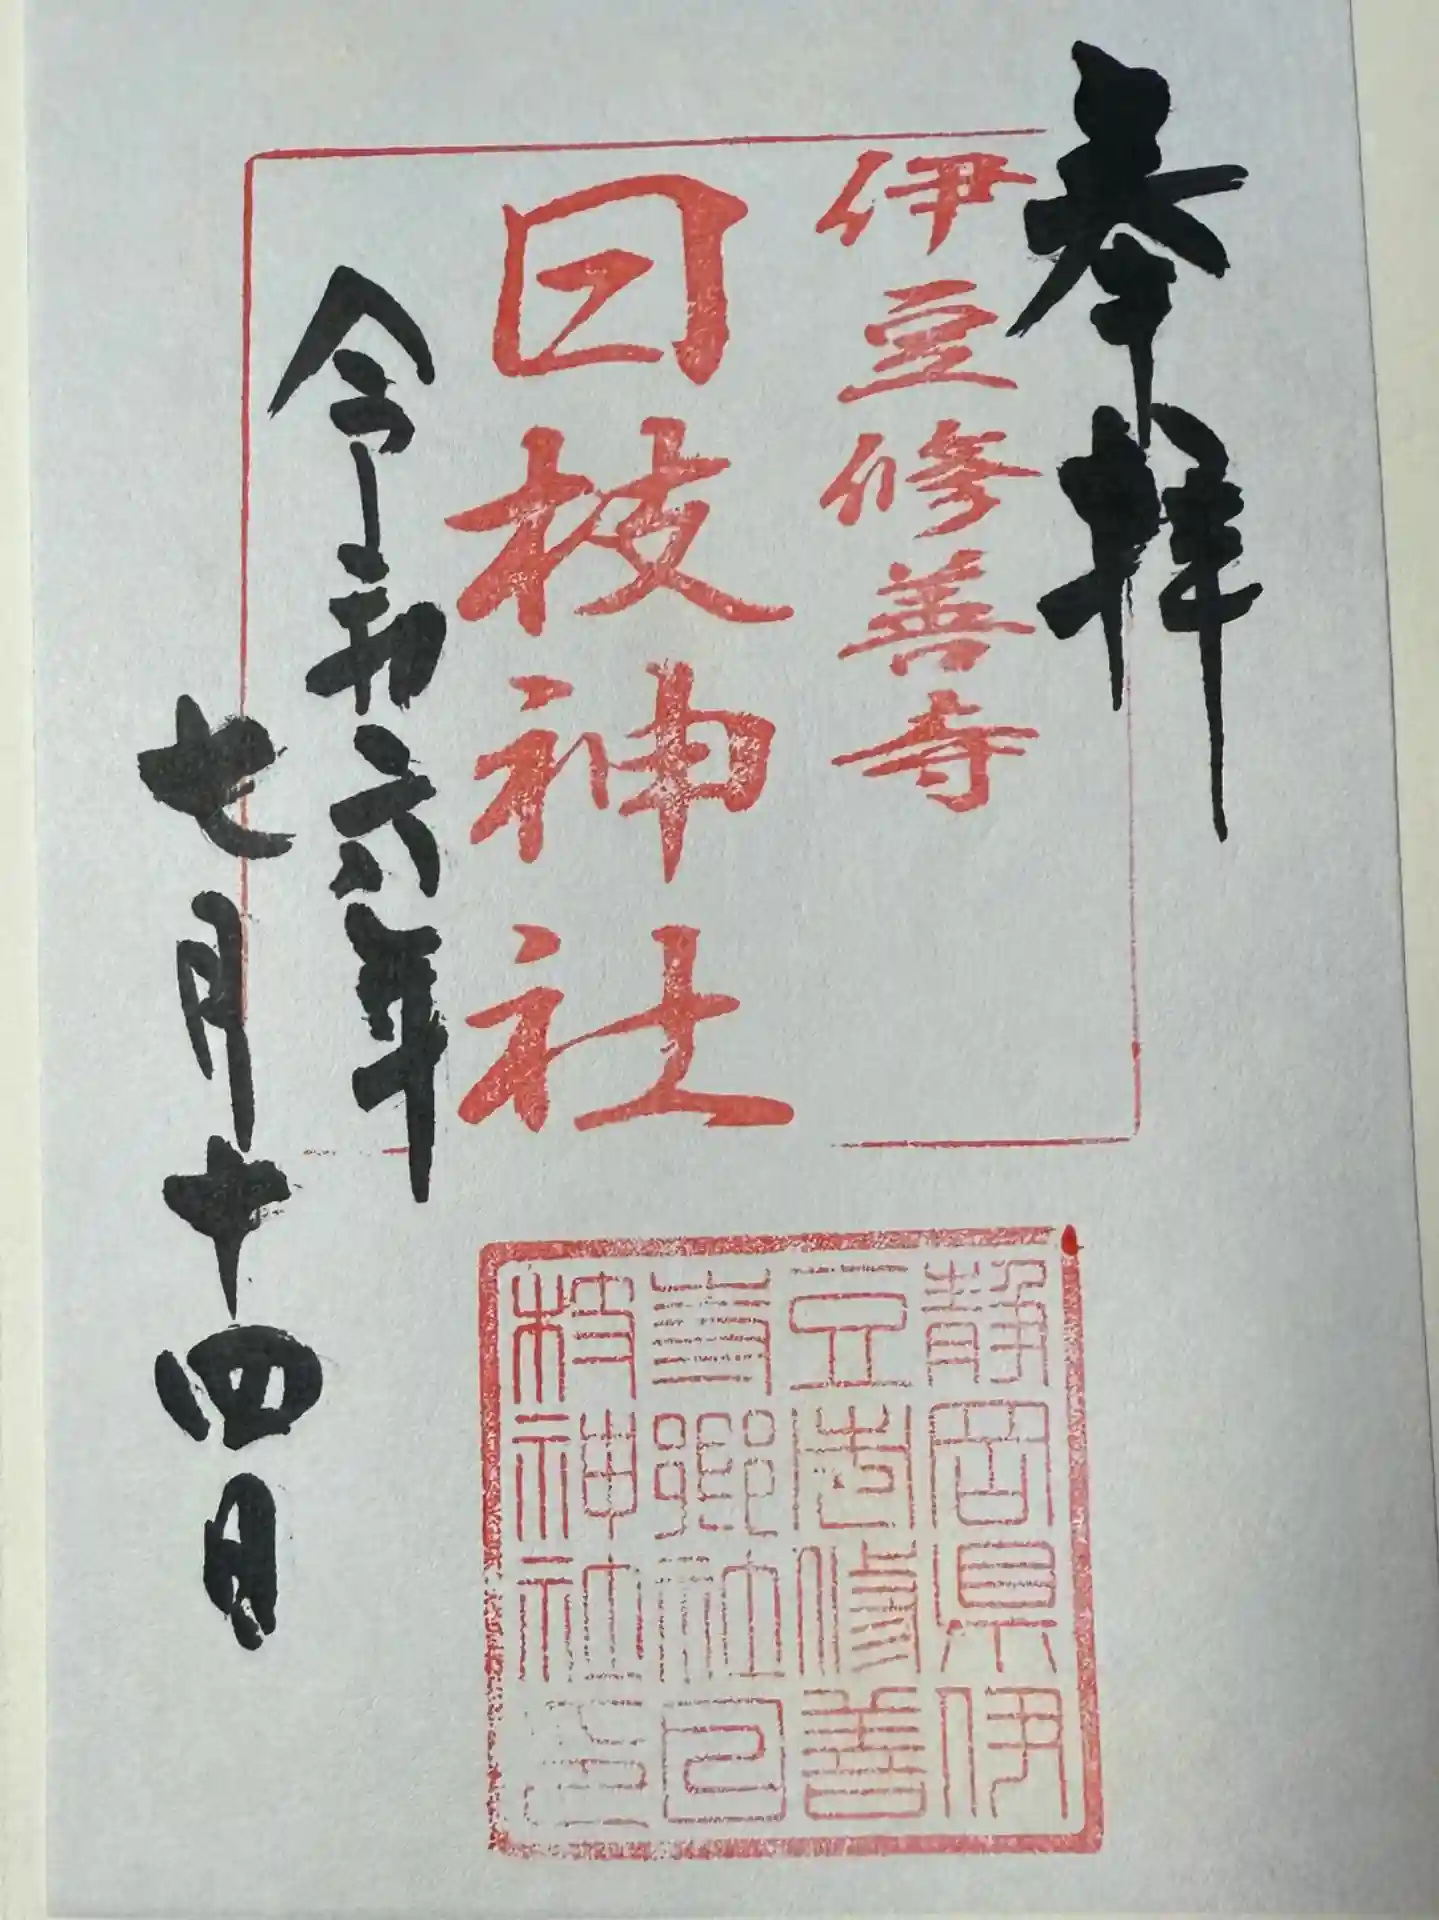 奉拝
伊豆修善寺
日枝神社
令和六年
七月十四日
静岡県伊
豆市修善
寺郷社日
枝神社